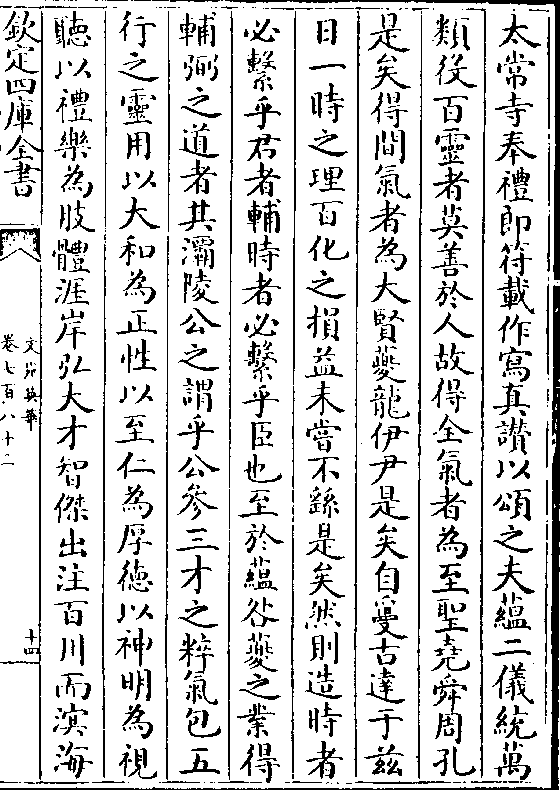 太常寺奉禮郎符載作寫真讃以頌之夫蘊二儀統萬
類役百靈者莫善於人故得全氣者為至聖堯舜周孔
是矣得間氣者為大賢夔龍伊尹是矣自敻古達于兹
日一時之理百化之損益未嘗不繇是矣然則造時者
必繫乎君者輔時者必繫乎臣也至於蘊咎夔之業得
輔弼之道者其灞陵公之謂乎公參三才之粹氣包五
行之靈用以大和為正性以至仁為厚德以神明為視
聽以禮樂為肢體涯岸弘大才智傑出注百川而溟海
欽定四庫全書
文苑英華
卷七百八十二
十四